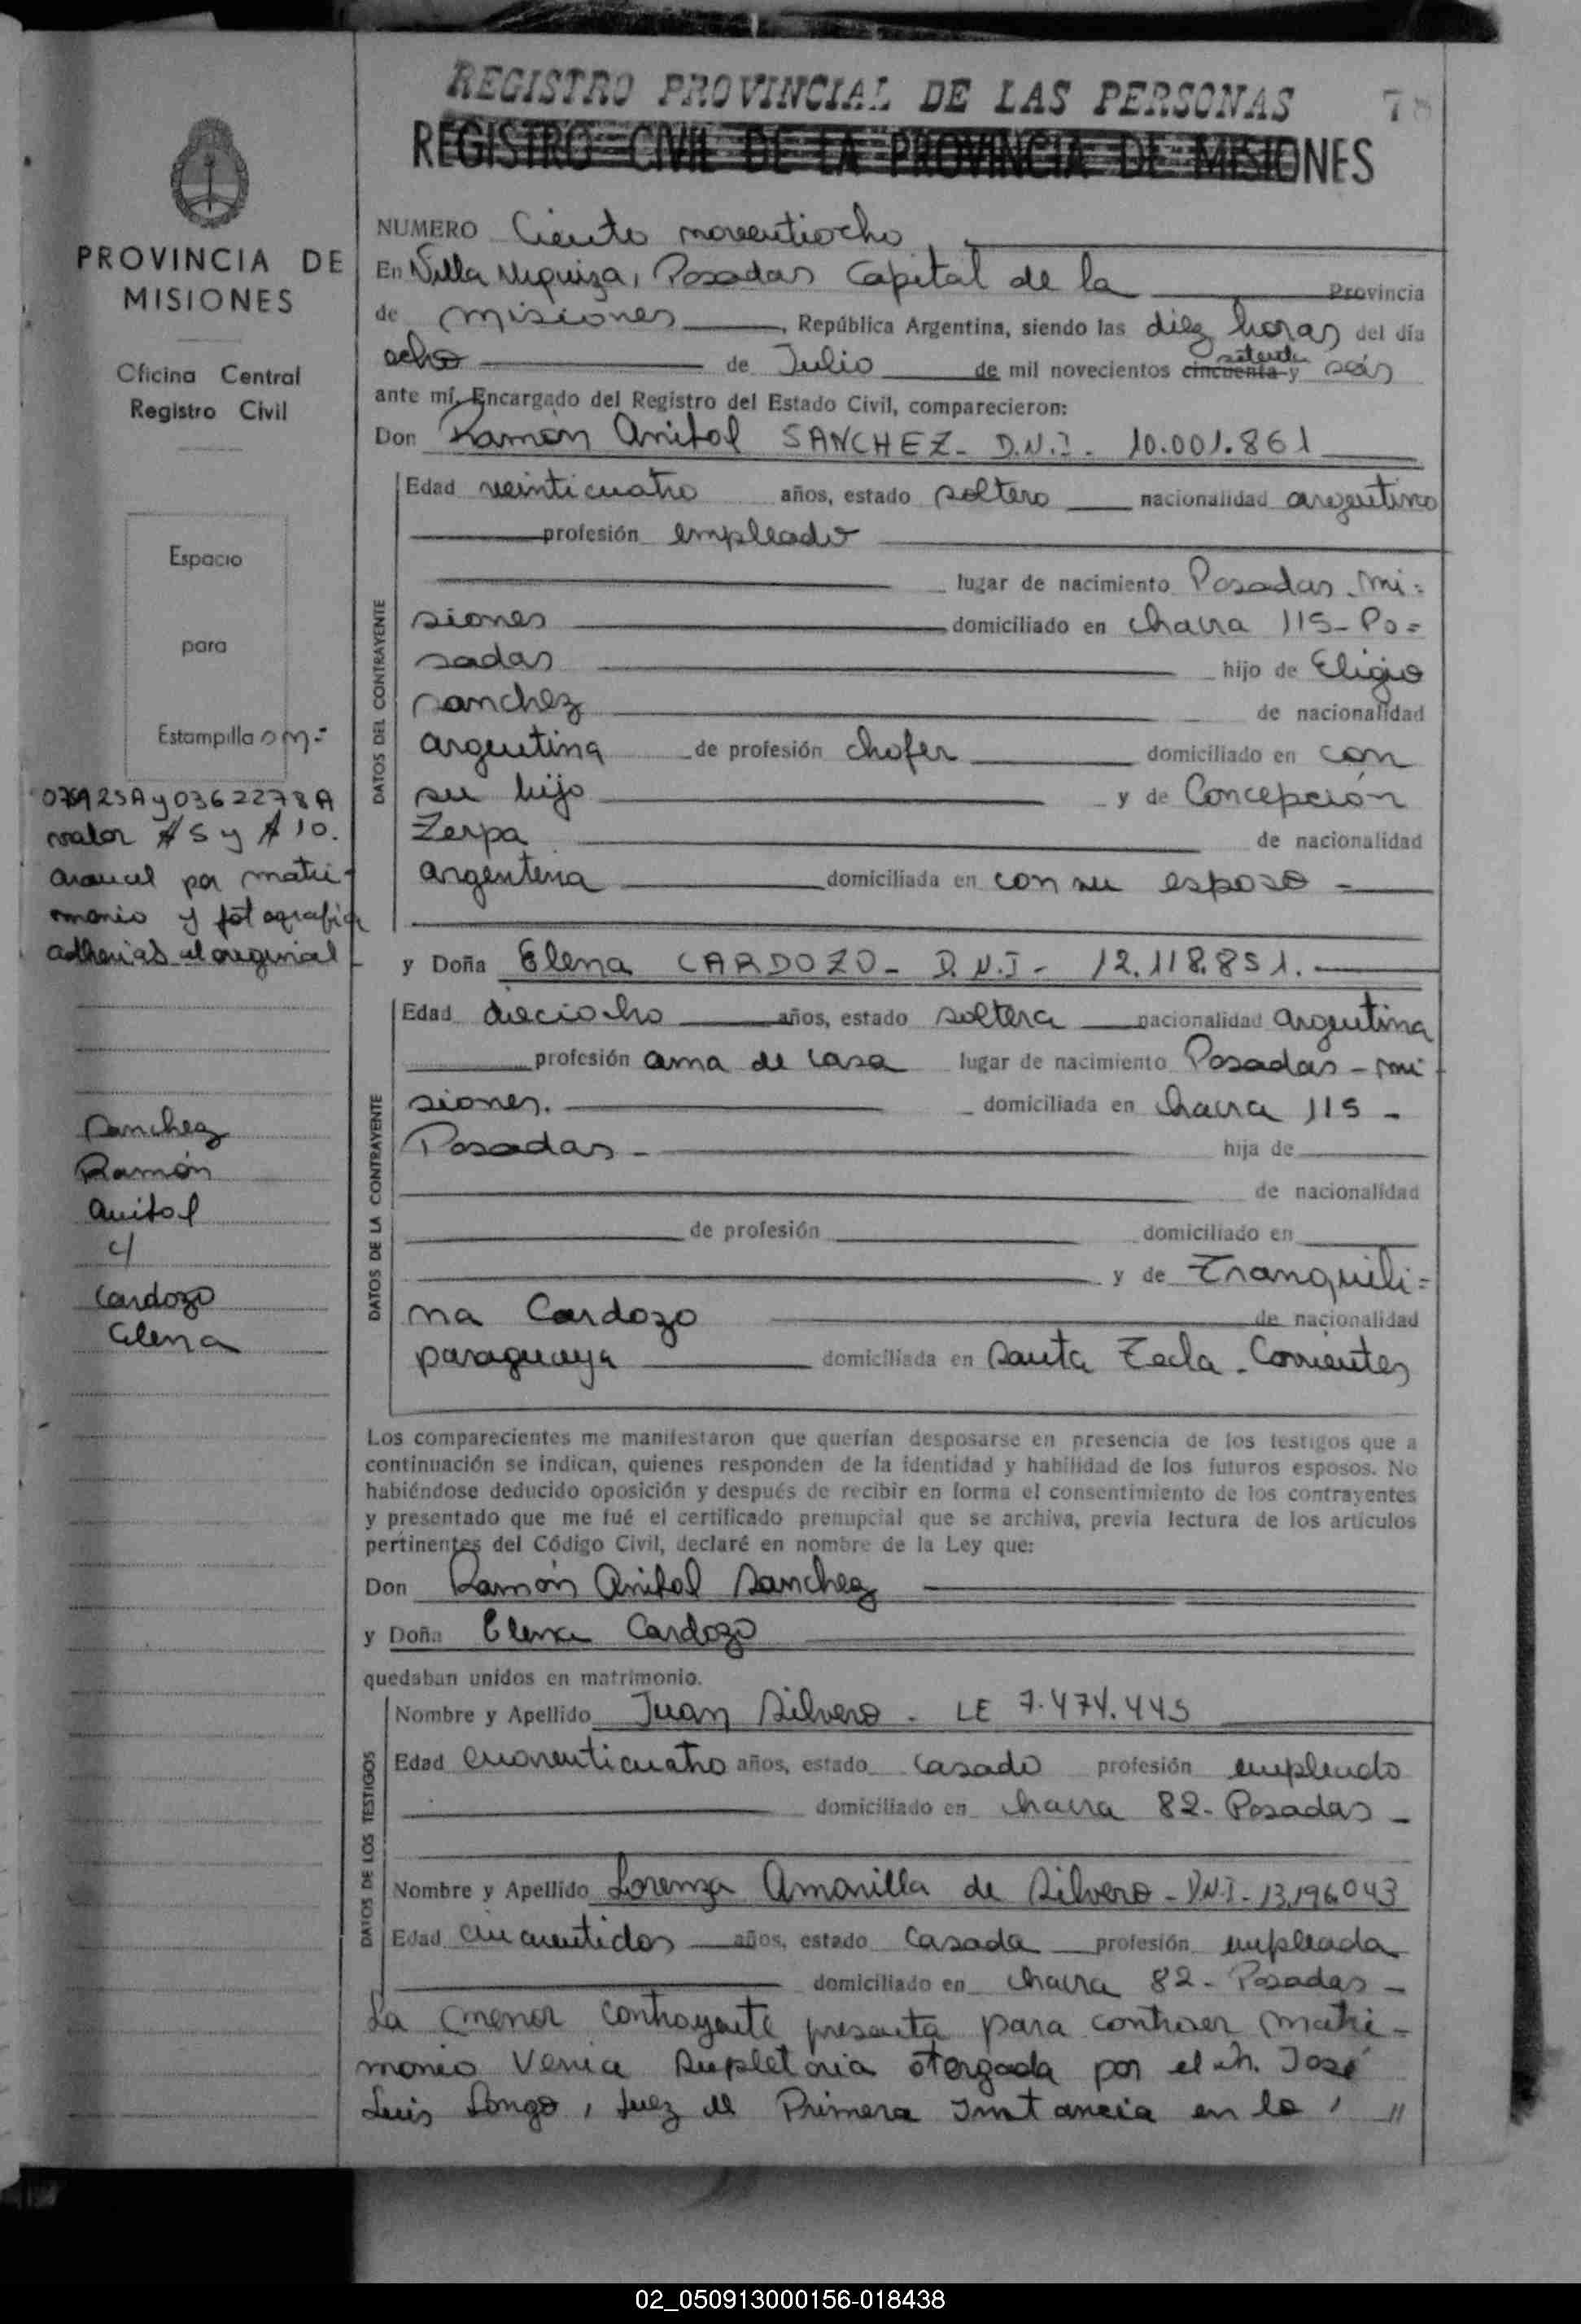 REGISTRO PROVINCIAL DE LAS PERSONAS 78
REGISTRO CIVIL DE LA PROVINCIA DE MISIONES
PROVINCIA DE
MISIONES
Oficina Central
Registro Civil
Espacio
para
Estampilla
valor $5 y $10.
arancel por matri-
monio y fotografia
al original
Sanchez
Ramón
Anibal
c/
Cardozo
Elena
NUMERO Ciento noventiocho
En Villa Urquiza, Posadas Capital de la Provincia
de Misiones, República Argentina, siendo las diez horas del día
ocho de Julio de mil novecientos cincuenta y setenta seis
ante mí, Encargado del Registro del Estado Civil, comparecieron:
Don Ramón Anibal SANCHEZ - D.N.I. 10.001.861
DATOS DEL CONTRAYENTE
Edad veinticuatro años, estado soltero nacionalidad argentino
profesión empleado
lugar de nacimiento Posadas. Mi=
siones domiciliado en chacra 115 - Po=
sadas hijo de Eligio
Sanchez de nacionalidad
argentina de profesión chofer domiciliado en con
su hijo y de Concepción
Zerpa de nacionalidad
argentina domiciliada en con su esposo -
y Doña Elena CARDOZO - D.N.I - 12.118.851.
DATOS DE LA CONTRAYENTE
Edad dieciocho años, estado soltera nacionalidad argentina
profesión ama de casa lugar de nacimiento Posadas - Mi
siones. domiciliada en chacra 115 -
Posadas - hija de
de nacionalidad
de profesión domiciliado en
y de Tranquili=
na Cardozo de nacionalidad
paraguaya domiciliada en Santa Tecla - Corrientes
Los comparecientes me manifestaron que querían desposarse en presencia de los testigos que a
continuación se indican, quienes responden de la identidad y habilidad de los futuros esposos. No
habiéndose deducido oposición y después de recibir en forma el consentimiento de los contrayentes
y presentado que me fué el certificado prenupcial que se archiva, previa lectura de los artículos
pertinentes del Código Civil, declaré en nombre de la Ley que:
Don Ramón Anibal Sanchez
y Doña Elena Cardozo
quedaban unidos en matrimonio.
DATOS DE LOS TESTIGOS
Nombre y Apellido Juan Silvero - LE 7.474.445
Edad cuarenticuatro años, estado casado profesión empleado
domiciliado en chacra 82 - Posadas -
Nombre y Apellido Lorenza Amarilla de Silvero - D.N.I - 13.196.043
Edad cincuentidos años, estado casada profesión empleada
domiciliado en chacra 82 - Posadas -
La menor contrayente presenta para contraer matri-
monio Venia Supletoria otorgada por el José
Luis Longo, Juez de Primera Instancia en lo , //
02_050913000156-018438